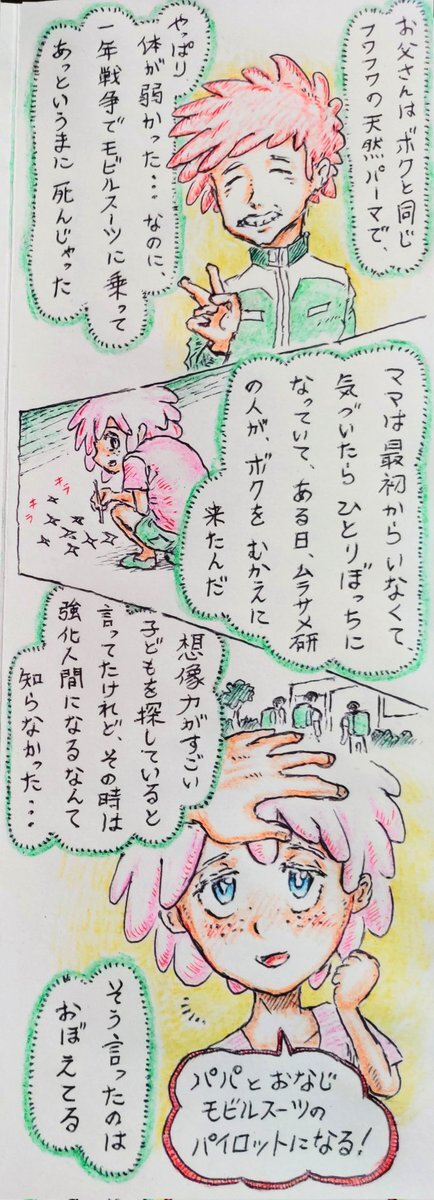 お父さんはボクと同じ
フワフワの天然パーマで、
やっぱり
体が弱かった・・・なのに、
一年戦争でモビルスーツに乗って
あっというまに死んじゃった
ママは最初からいなくて、
気づいたらひとりぼっちに
なっていて、ある日、ムラサメ研
の人が、ボクをむかえに
来たんだ
キラ
キラ
想像力がすごい
子どもを探していると
言ってたけれど、その時は
強化人間になるなんて
知らなかった・・・
パパとおなじ
モビルスーツの
パイロットになる!
そう言ったのは
おぼえてる